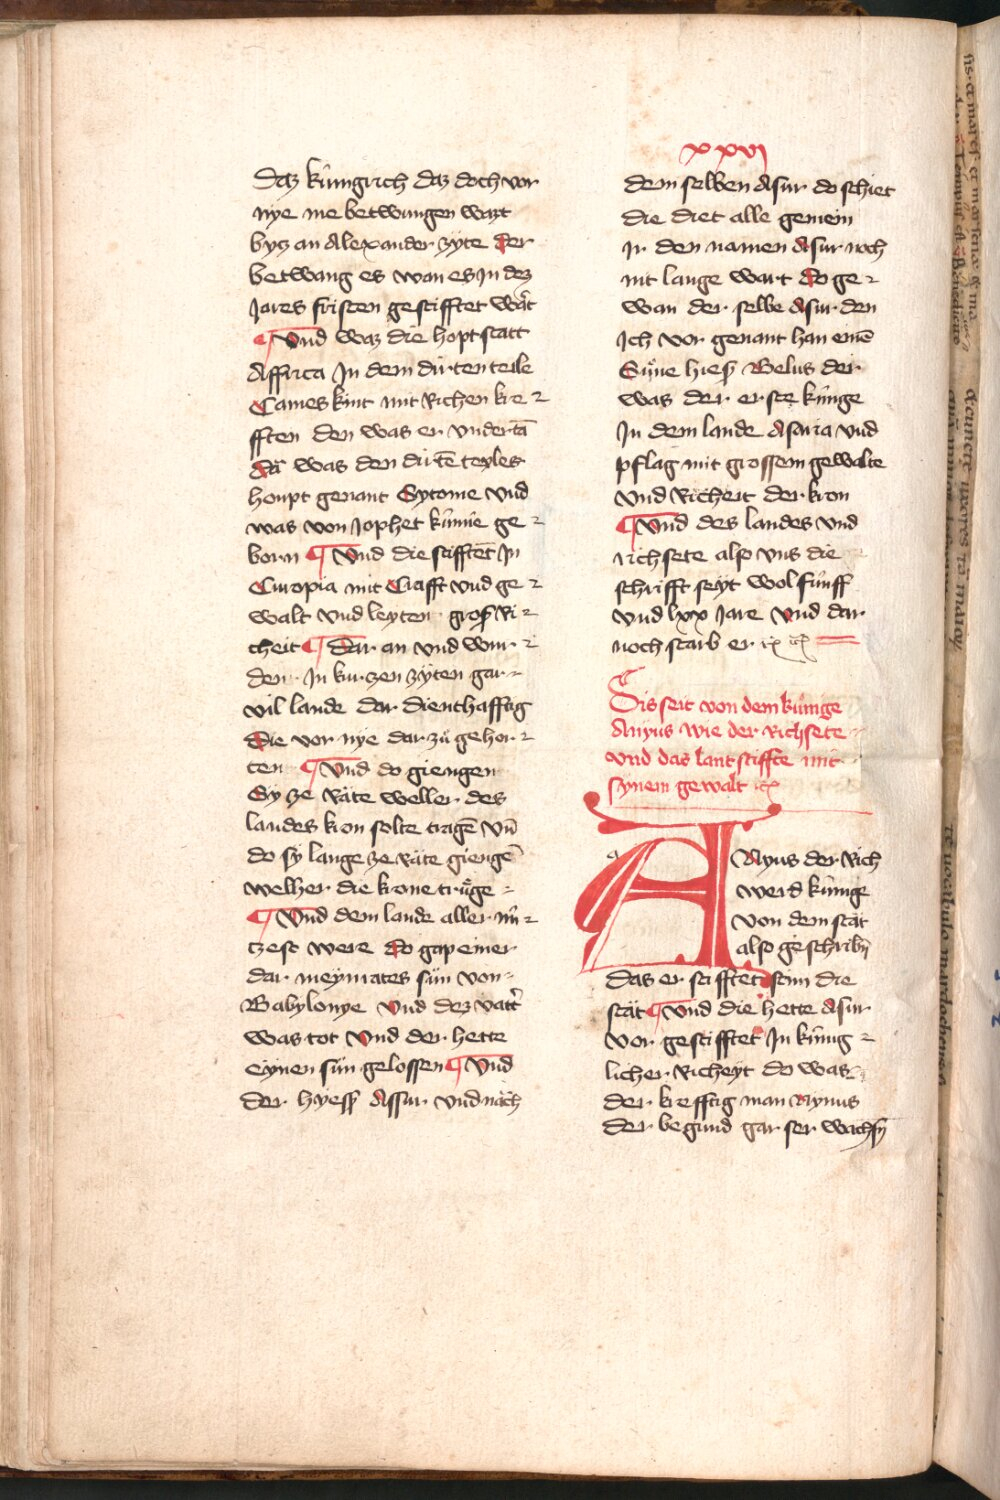 xxvj
Daz kúnigrich daz doch vor
nye me betwungen wart
bysz an Alexander zyte Der
betwang es wan es Jn dez
Jares fristen gestifftet wart
¶ Vnd waz die hoptstatt
Affrica Jn dem dirten teile
Cames kint mit Richen kre⸗
fften den was er vndertā
Da was den dirtē teyles
houpt genant Sytome vnd
was von Jophet kúnne ge⸗
born ¶ Vnd die stifftēt Jn
Europia mit Crafft vnd ge⸗
walt vnd leyten grosz Ri⸗
cheit ¶ Dar an vnd wur⸗
den Jn kurzen zyten gar
vil lande dar diensthafftig
Die vor nye dar zů gehor⸗
ten ¶ Vnd do giengen
Sy ze Râte weller des
landes kron solte tragē vn̄
do sy lange ze râte giengē
welher die krone trůge
¶ Vnd dem lande aller nú⸗
tzest were do gap einer
dar meymates sún von
Babylonye Vnd dez vatt̄
was tot Vnd der hette
eynen sún gelossen ¶ Vnd
der hyess Assur vnd nach
dem selben Asur do schiet
die diet alle gemein
Jn den namen Asur noch
nit lange wart do ge⸗
wan der selbe Asur den
Jch vor genant han einē
Súne hiesz Belus der
was der erste kúnge
Jn dem lande Asiria vnd
pflag mit grossem gewalte
vnd Richeit der kron
¶ Vnd des landes vnd
richsete also vns die
schrifft seyt wol fúnff
vnd lxx Jare Vnd dar
noch starb er
Dis seit von dem kúnige
Anyus wie der Richsete
vnd das lant stiffte mit
synem gewalt
a
A Nyus der Rich
werd kúnige
von dem stat
also geschribn̄
das er stifftet sem die
stât ¶ Vnd die hette Asur
vor gestifftet Jn kúnig⸗
licher Richeyt do was
der krefftig man Nynus
der begund gar ser wachsn̄